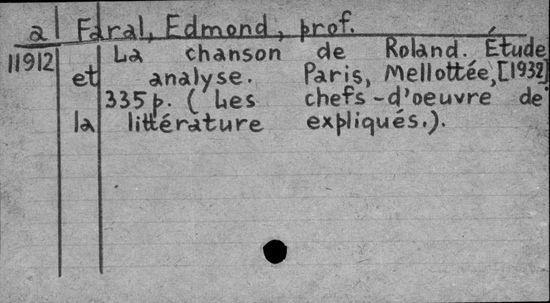 a Faral, Edmond, prof.
11912 La chanson de Roland. Étude
et analyse. Paris, Mellottée, [1932]
335 p. (Les chefs-d'oeuvre de
la littérature expliqués.).